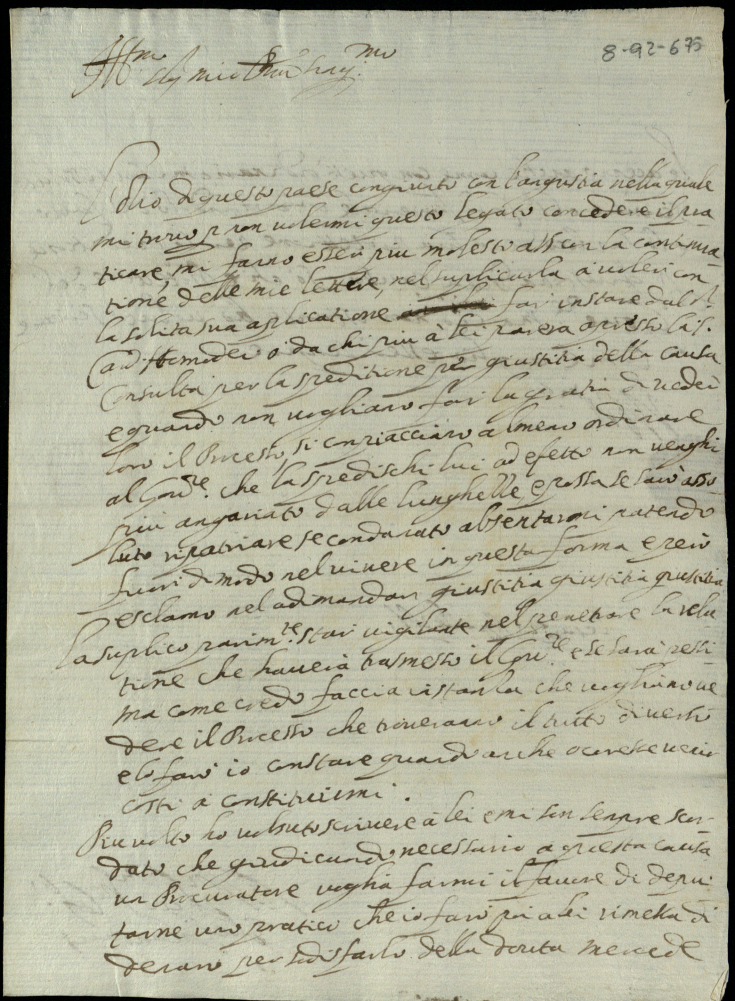 8-92-675
Ill.mo
Sig mio
L'odio di questo paese congiunto con l'angustia nella quale
mi trovo p non volermi questo legato concedere il pra
ticare, mi fanno esser piu molesto a con la continua
tione delle mie lettere, nel suplicarla a voler con
la solita sua aplicatione far instare dal
ò da chi piu à lei parerà apresso la S.
Consulta per la speditione per giustitia della causa
e quando non vogliano far la gratia di veder
loro il Processo, si compiacciano almeno ordinare
al che la spedischi lui ad efetto non venghi
piu angariato dalle lunghelle, e possa se sarò asso
luto ripatriare se condanato absentarmi patendo
fuori di modo nel vivere in questa forma e però
esclamo nel adimandar giustitia giustitia giustitia
La suplico parim.te star vigilante nel penetrare la rela
tione che haverà trasmesso il e se sarà pessi
ma come credo faccia instanza che vogliano ve
dere il Processo che troveranno il tutto diverso
e lo farò io constare quando anche ocoresse venir
costì a constituirmi.
Piu volte ho volsuto scrivere à lei e mi son sempre scor-
dato che giudicando necessario a questa causa
un Procuratore voglia farmi il favore di depu
tarne uno pratico che io farò poi a lei rimessa di
denaro per sodisfarlo della dovuta mercede